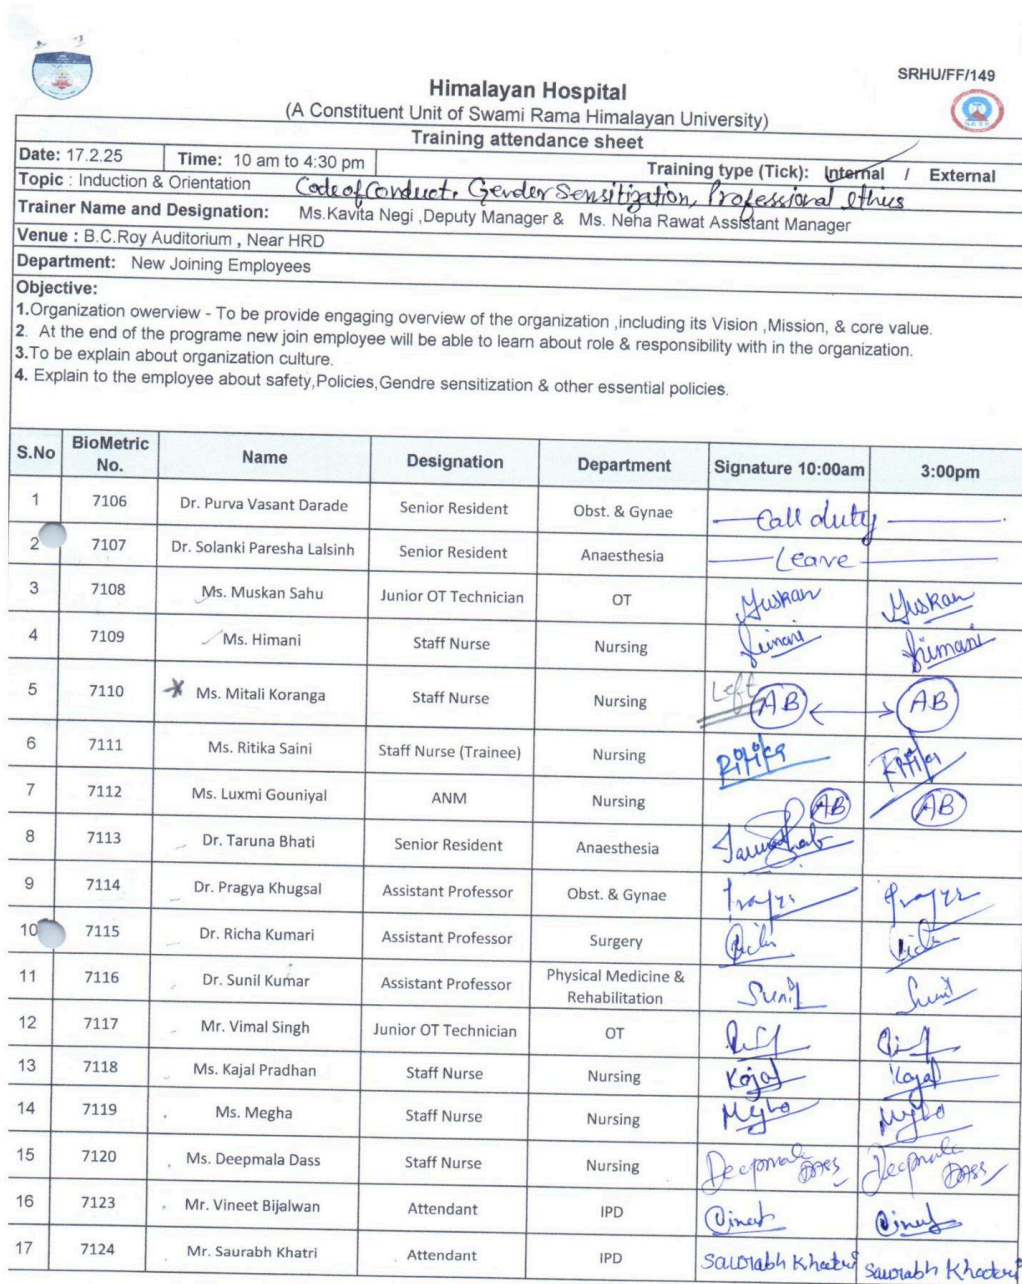 SRHU/FF/149
Himalayan Hospital
(A Constituent Unit of Swami Rama Himalayan University)
Training attendance sheet
Date: 17.2.25 Time: 10 am to 4:30 pm Training type (Tick): Internal / External
Topic : Induction & Orientation Code of Conduct, Gender Sensitization, Professional ethics
Trainer Name and Designation: Ms.Kavita Negi ,Deputy Manager & Ms. Neha Rawat Assistant Manager
Venue : B.C.Roy Auditorium , Near HRD
Department: New Joining Employees
Objective:
1.Organization owerview - To be provide engaging overview of the organization ,including its Vision ,Mission, & core value.
2. At the end of the programe new join employee will be able to learn about role & responsibility with in the organization.
3.To be explain about organization culture.
4. Explain to the employee about safety,Policies,Gendre sensitization & other essential policies.
S.No BioMetric No. Name Designation Department Signature 10:00am 3:00pm
1 7106 Dr. Purva Vasant Darade Senior Resident Obst. & Gynae Call duty
2 7107 Dr. Solanki Paresha Lalsinh Senior Resident Anaesthesia Leave
3 7108 Ms. Muskan Sahu Junior OT Technician OT Muskan Muskan
4 7109 Ms. Himani Staff Nurse Nursing Himani Himani
5 7110 Ms. Mitali Koranga Staff Nurse Nursing Left AB AB
6 7111 Ms. Ritika Saini Staff Nurse (Trainee) Nursing Ritika Ritika
7 7112 Ms. Luxmi Gouniyal ANM Nursing AB AB
8 7113 Dr. Taruna Bhati Senior Resident Anaesthesia
9 7114 Dr. Pragya Khugsal Assistant Professor Obst. & Gynae
10 7115 Dr. Richa Kumari Assistant Professor Surgery
11 7116 Dr. Sunil Kumar Assistant Professor Physical Medicine & Rehabilitation Sunil Sunil
12 7117 Mr. Vimal Singh Junior OT Technician OT
13 7118 Ms. Kajal Pradhan Staff Nurse Nursing Kajal Kajal
14 7119 Ms. Megha Staff Nurse Nursing Megha Megha
15 7120 Ms. Deepmala Dass Staff Nurse Nursing Deepmala Dass Deepmala Dass
16 7123 Mr. Vineet Bijalwan Attendant IPD Vineet Vineet
17 7124 Mr. Saurabh Khatri Attendant IPD Saurabh Khatri Saurabh Khatri